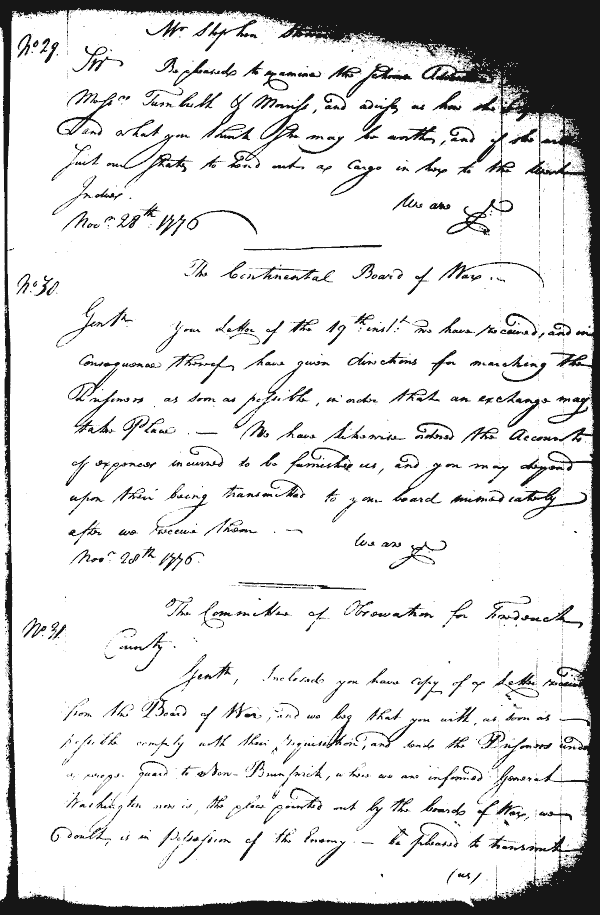 Mr. Stephen
No. 29.
Sir Be pleased to examine the Schooner
Messrs. Turnbull & Morriss, and advise us how she
and what you think she may be worth, and if she will
suit our State, to send out a Cargo in her to the West
Indies. We are &c.
Novr. 28th. 1776
The Continental Board of War.
No. 30.
Gentn. Your Letter of the 19th. inst. we have received, and in
consequence thereof, have given directions for marching the
Prisoners as soon as possible, in order that an exchange may
take Place. — We have likewise ordered the Accounts
of expences incurred to be furnished us, and you may depend
upon their being transmitted to your board immediately
after we receive them. — We are &c.
Novr. 28th 1776.
The Committee of Observation for Frederick
No. 31.
County.
Gentn. Inclosed you have copy of a Letter received
from the Board of War, and we beg that you will, as soon as
possible comply with their requisition, and send the Prisoners under
a proper guard to New-Brunswick, where we are informed General
Washington now is, the place pointed out by the board of War, we
doubt, is in possession of the Enemy — be pleased to transmit
(us)